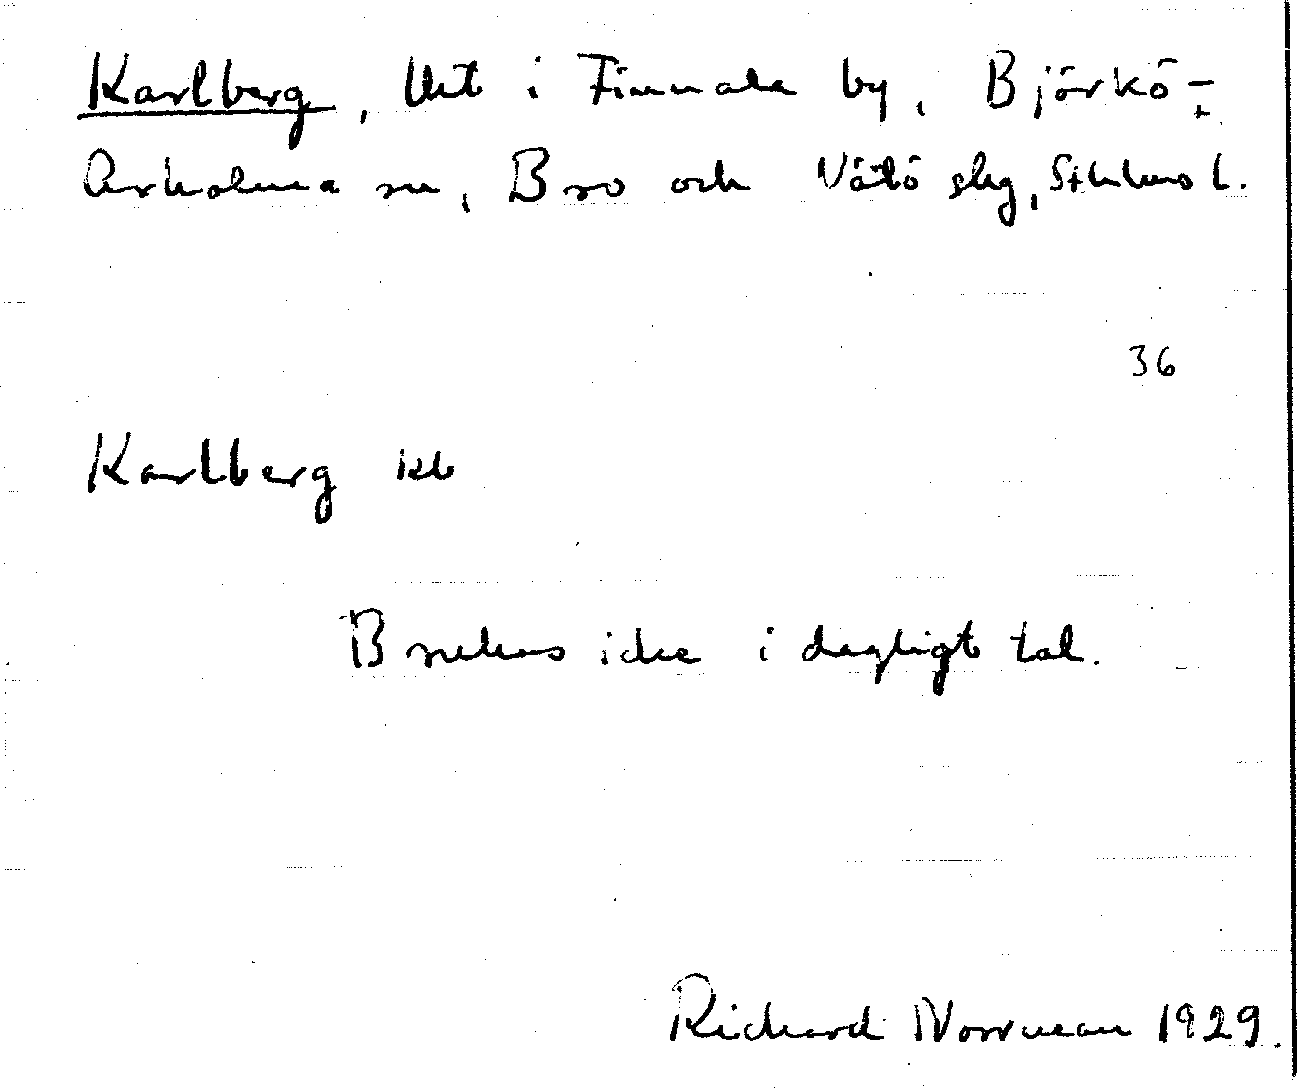 Karlberg, lht i Finnala by, Björkö-
Arholma sn, Bro och Vätö slg, Sthlms l.
36
Karlberg kb
Brukas icke i dagligt tal.
Richard Norrman 1929.